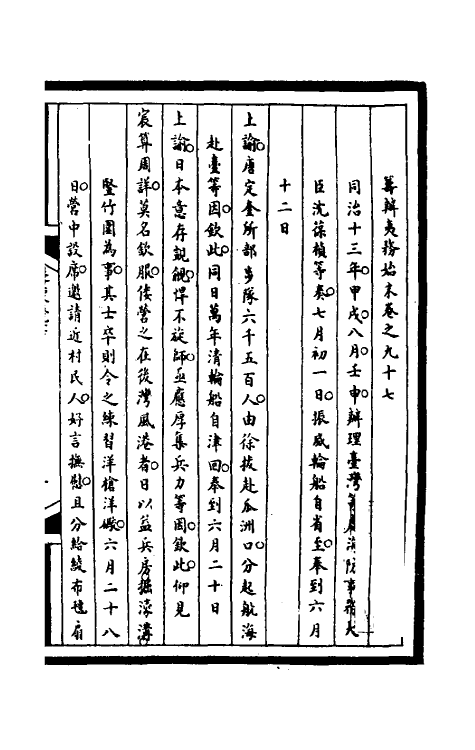 籌辦夷務始末卷之九十七
同治十三年甲戌八月壬申辦理臺灣等處海防事務大
臣沈葆楨等奏七月初一日振威輪船自省至奉到六月
十二日
上諭唐定奎所部步隊六千五百人由徐拔赴瓜洲口分起航海
赴臺等因欽此同日萬年清輪船自津回奉到六月二十日
上諭日本意存覬覦悍不旋師亟應厚集兵力等因欽此仰見
宸算周詳莫名欽服倭營之在後灣風港者日以益兵房掘濠溝
豎竹圍為事其士卒則令之練習洋槍洋礮六月二十八
日營中設席邀請近村民人好言撫慰且分給綾布氊扇